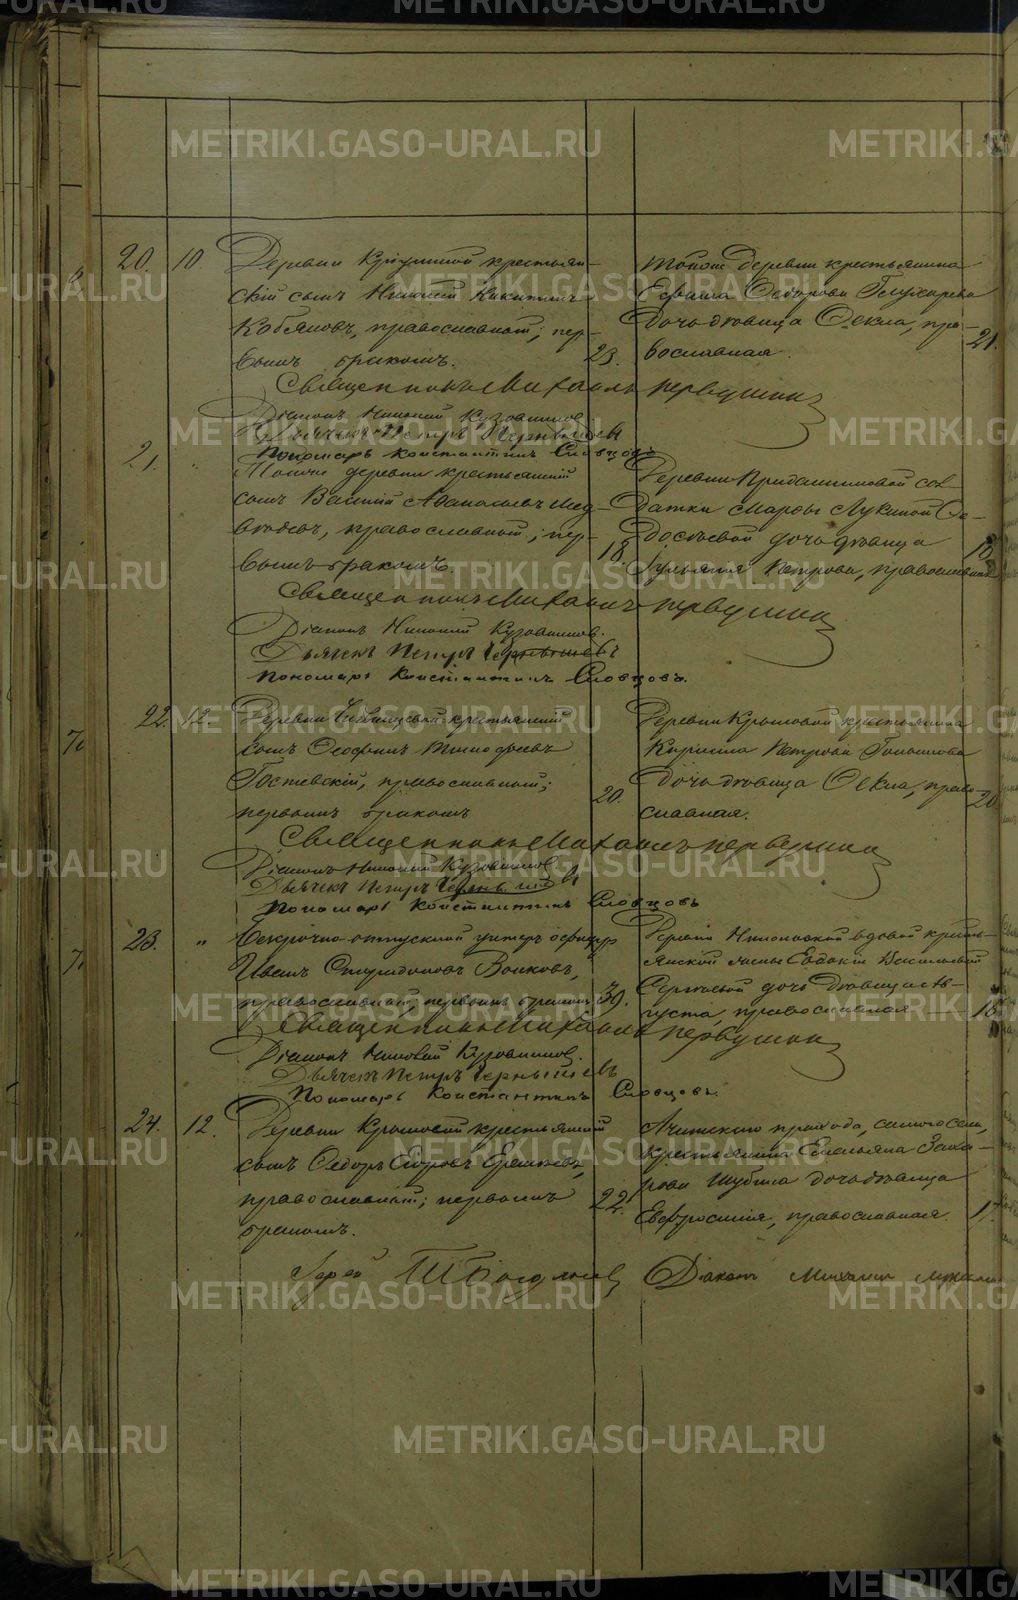 METRIKI.GASO-URAL.RU
20.
10.
Деревни крестьян-
скій сынъ Николай Никитинъ
Кобяковъ, православный; пер-
вымъ бракомъ.
23.
тойже деревни крестьянина
Ефима Федорова Глухарева
дочь девица Фекла, пра-
вославная.
21.
Священникъ Михаилъ Первушинъ
Діаконъ Николай Кузовниковъ
Дьячекъ Петръ Чернышевъ
Пономарь Константинъ Словцовъ
21.
Тойже деревни крестьянскій
сынъ Василій Афанасьевъ Мед-
ведевъ, православный; пер-
вымъ бракомъ.
18.
Деревни сол-
датки Марфы Лукиной Фе-
досеевой дочь девица
Іульянія Петрова, православная
18
Священникъ Михаилъ Первушинъ
Діаконъ Николай Кузовниковъ.
Дьячекъ Петръ Чернышевъ
Пономарь Константинъ Словцовъ.
22.
12.
Деревни крестьянскій
сынъ Феофанъ
Гостевскій, православный;
первымъ бракомъ
20.
Деревни Крыловой крестьянина
Кирилла Петрова
дочь девица Фекла, право-
славная.
20
Священникъ Михаилъ Первушинъ
Діаконъ Николай Кузовниковъ
Дьячекъ Петръ Чернышевъ
Пономарь Константинъ Словцовъ
23.
"
Безсрочно-отпускной унтеръ офицеръ
Иванъ Спиридоновъ Волковъ,
православный, первымъ бракомъ
39.
Деревни вдовой кресть-
янской жены Евдокіи Васильевой
Сергеевой дочь девица Ав-
густа, православная
18
Священникъ Михаилъ Первушинъ
Діаконъ Николай Кузовниковъ.
Дьячекъ Петръ Чернышевъ
Пономарь Константинъ Словцовъ.
24.
12.
Деревни Крыловой крестьянскій
сынъ Федоръ Егоровъ
православный; первымъ
бракомъ.
22.
Ачитскаго прихода, самого села,
крестьянина Емельяна Заха-
рова Шубина дочь девица
Евфросинія, православная.
17.
Іерей
Діаконъ